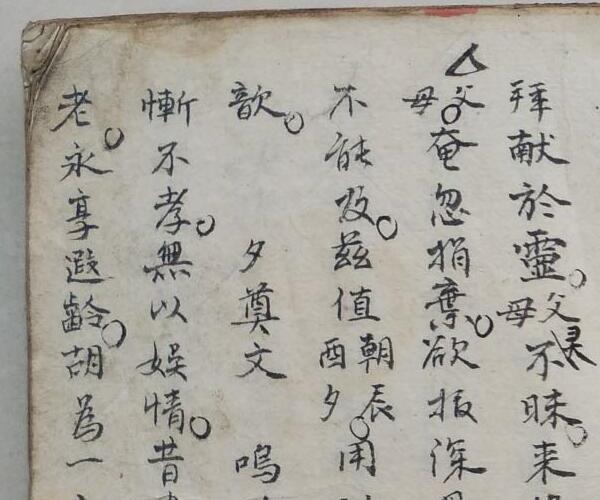 拜献於靈父母不昧来
父母奄忽捐棄欲報深
不能及兹值朝辰酉夕用
歆
夕奠文 嗚
慚不孝無以娱情昔
老永享遐齡胡為一